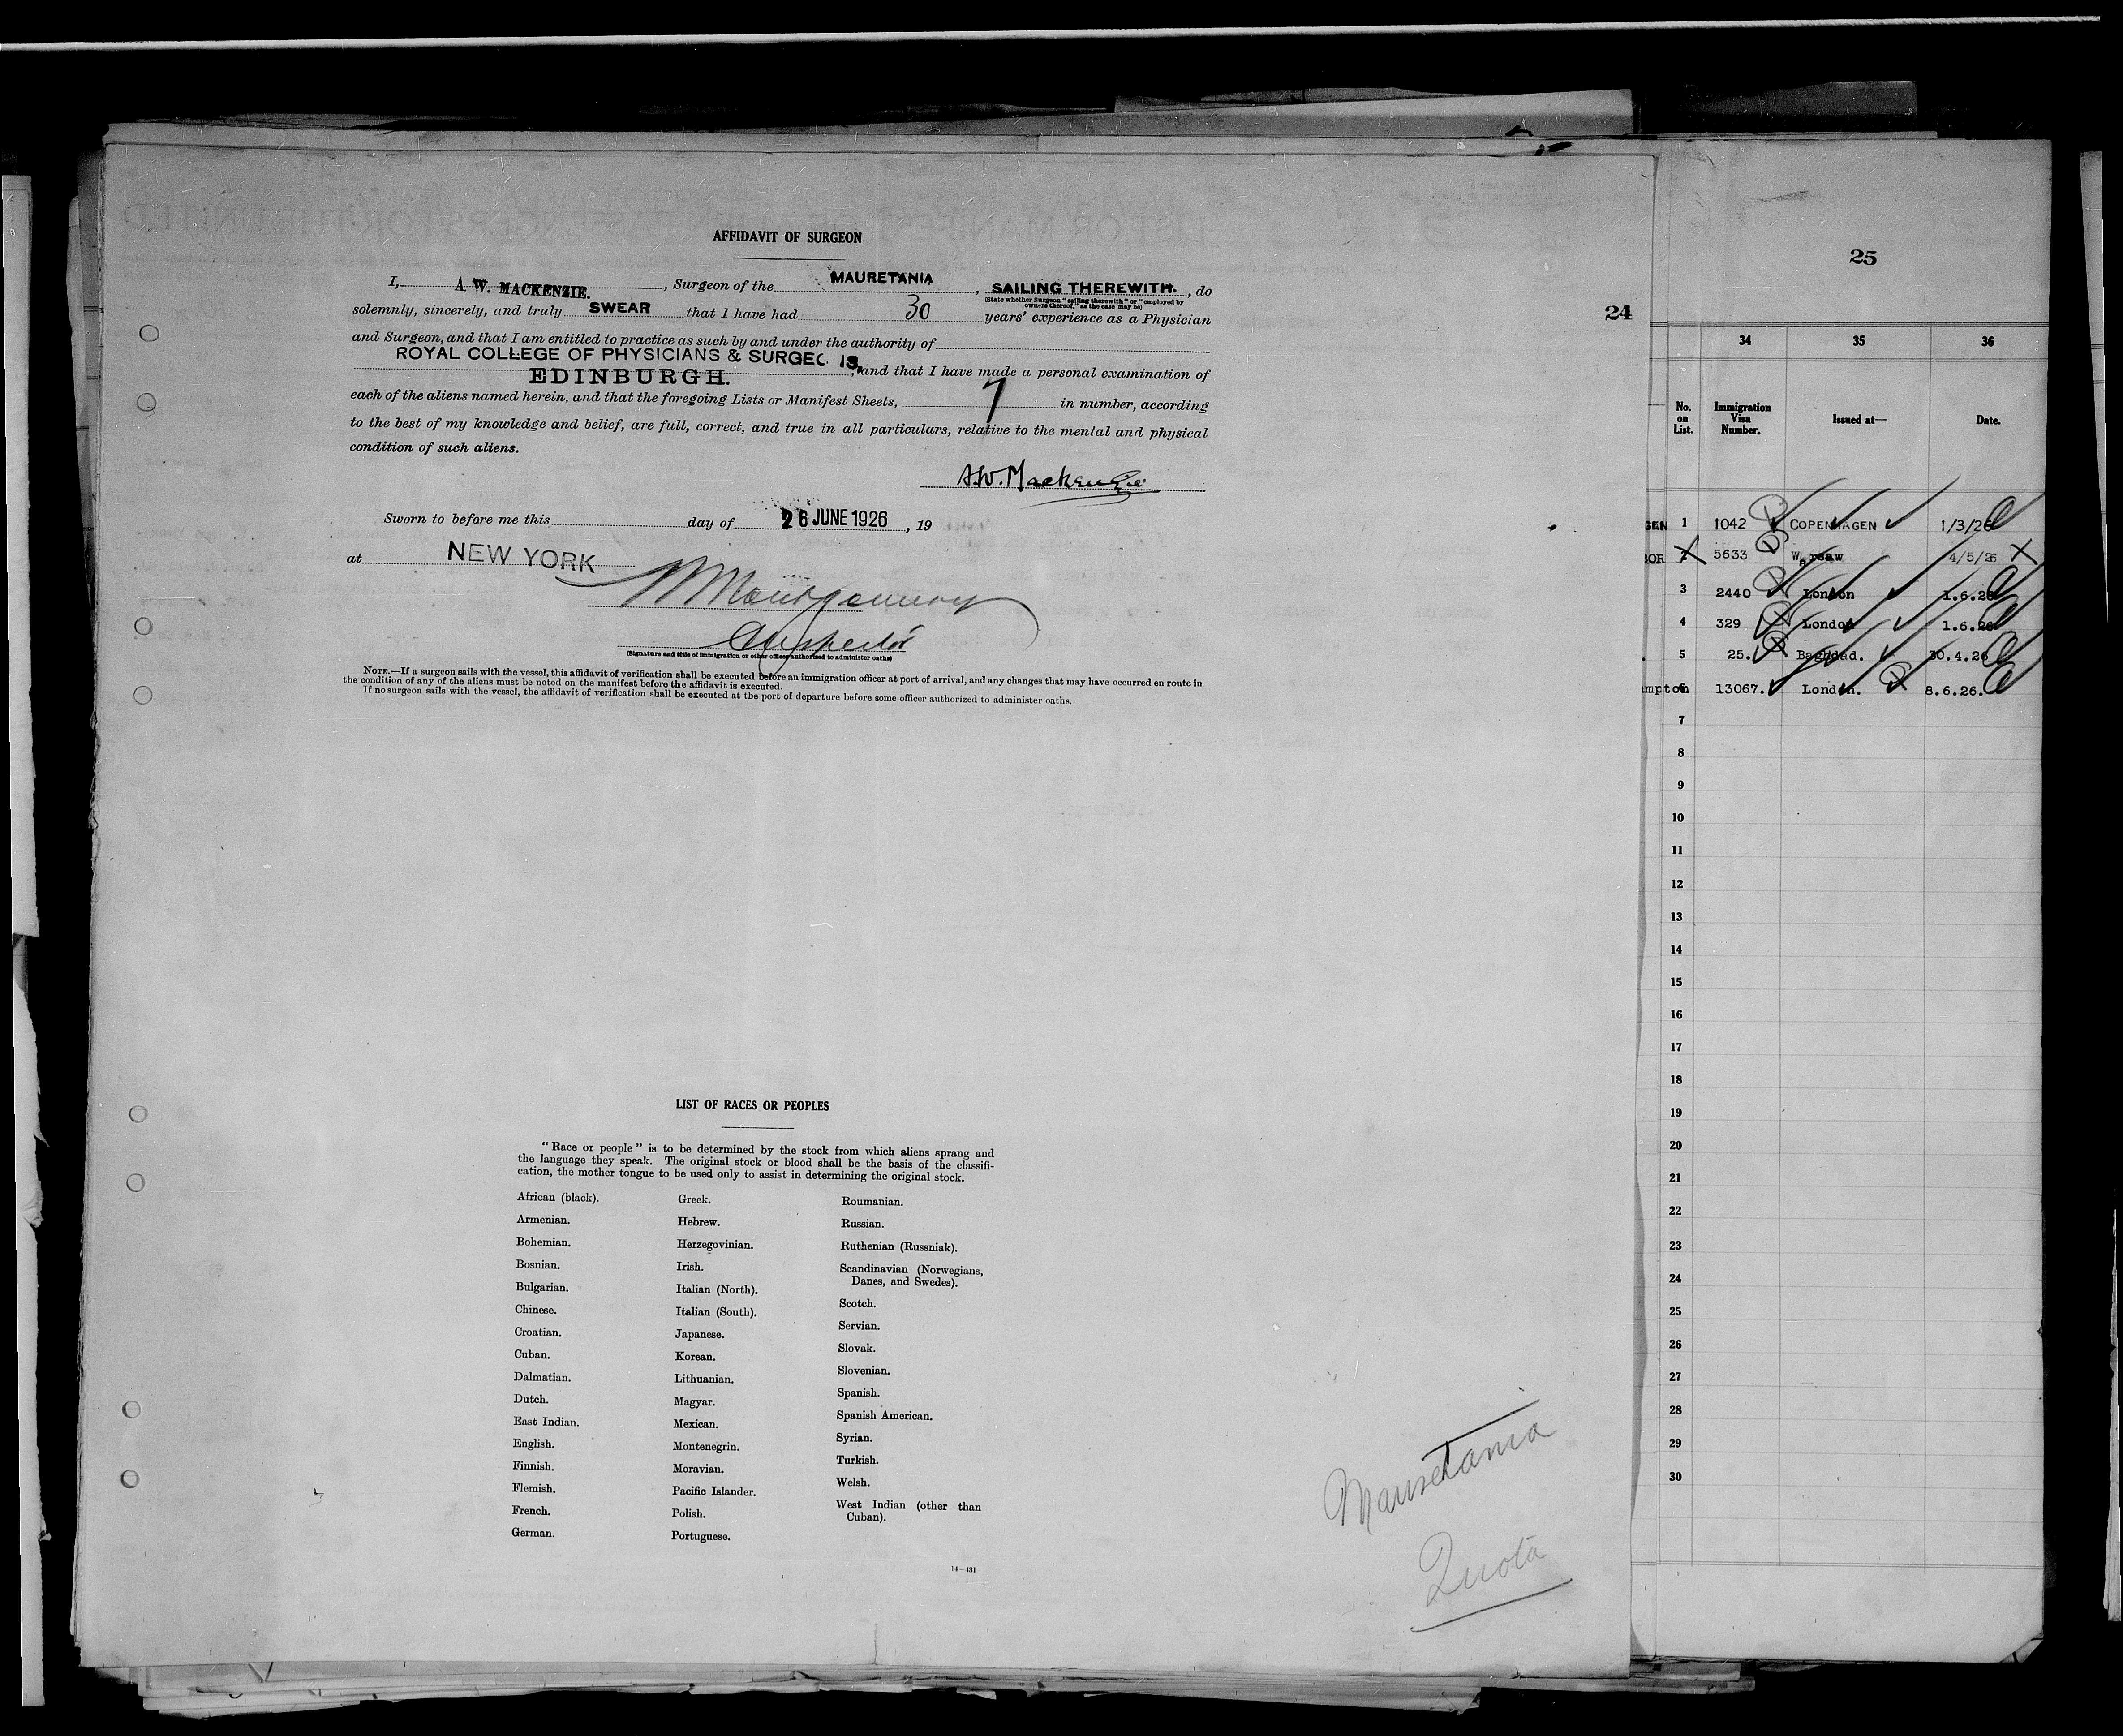 AFFIDAVIT OF SURGEON
I, A. W. MACKENZIE. , Surgeon of the MAURETANIA , SAILING THEREWITH. , do
(State whether Surgeon "sailing therewith" or "employed by
owners thereof," as the case may be)
solemnly, sincerely, and truly SWEAR that I have had 30 years' experience as a Physician
and Surgeon, and that I am entitled to practice as such by and under the authority of
ROYAL COLLEGE OF PHYSICIANS &
EDINBURGH. , and that I have made a personal examination of
each of the aliens named herein, and that the foregoing Lists or Manifest Sheets, 7 in number, according
to the best of my knowledge and belief, are full, correct, and true in all particulars, relative to the mental and physical
condition of such aliens.
A.W. Mackenzie
Sworn to before me this day of 26 JUNE 1926 , 19
at NEW YORK
Montgomery
Inspector
(Signature and title of immigration or other officer authorized to administer oaths)
NOTE.—If a surgeon sails with the vessel, this affidavit of verification shall be executed before an immigration officer at port of arrival, and any changes that may have occurred en route in
the condition of any of the aliens must be noted on the manifest before the affidavit is executed.
If no surgeon sails with the vessel, the affidavit of verification shall be executed at the port of departure before some officer authorized to administer oaths.
LIST OF RACES OR PEOPLES
"Race or people" is to be determined by the stock from which aliens sprang and
the language they speak. The original stock or blood shall be the basis of the classifi-
cation, the mother tongue to be used only to assist in determining the original stock.
African (black).
Armenian.
Bohemian.
Bosnian.
Bulgarian.
Chinese.
Croatian.
Cuban.
Dalmatian.
Dutch.
East Indian.
English.
Finnish.
Flemish.
French.
German.
Greek.
Hebrew.
Herzegovinian.
Irish.
Italian (North).
Italian (South).
Japanese.
Korean.
Lithuanian.
Magyar.
Mexican.
Montenegrin.
Moravian.
Pacific Islander.
Polish.
Portuguese.
Roumanian.
Russian.
Ruthenian (Russniak).
Scandinavian (Norwegians,
Danes, and Swedes).
Scotch.
Servian.
Slovak.
Slovenian.
Spanish.
Spanish American.
Syrian.
Turkish.
Welsh.
West Indian (other than
Cuban).
14—431
Mauretania
Quota
24
25
34 35 36
No. on List. Immigration Visa Number. Issued at— Date.
GEN 1 1042 COPENHAGEN 1/3/26
BOR 2 5633 Warsaw 4/5/26
3 2440 London 1.6.26
4 329 London 1.6.26
5 25. Baghdad. 30.4.26
ampton 6 13067. London. 8.6.26.
7
8
9
10
11
12
13
14
15
16
17
18
19
20
21
22
23
24
25
26
27
28
29
30